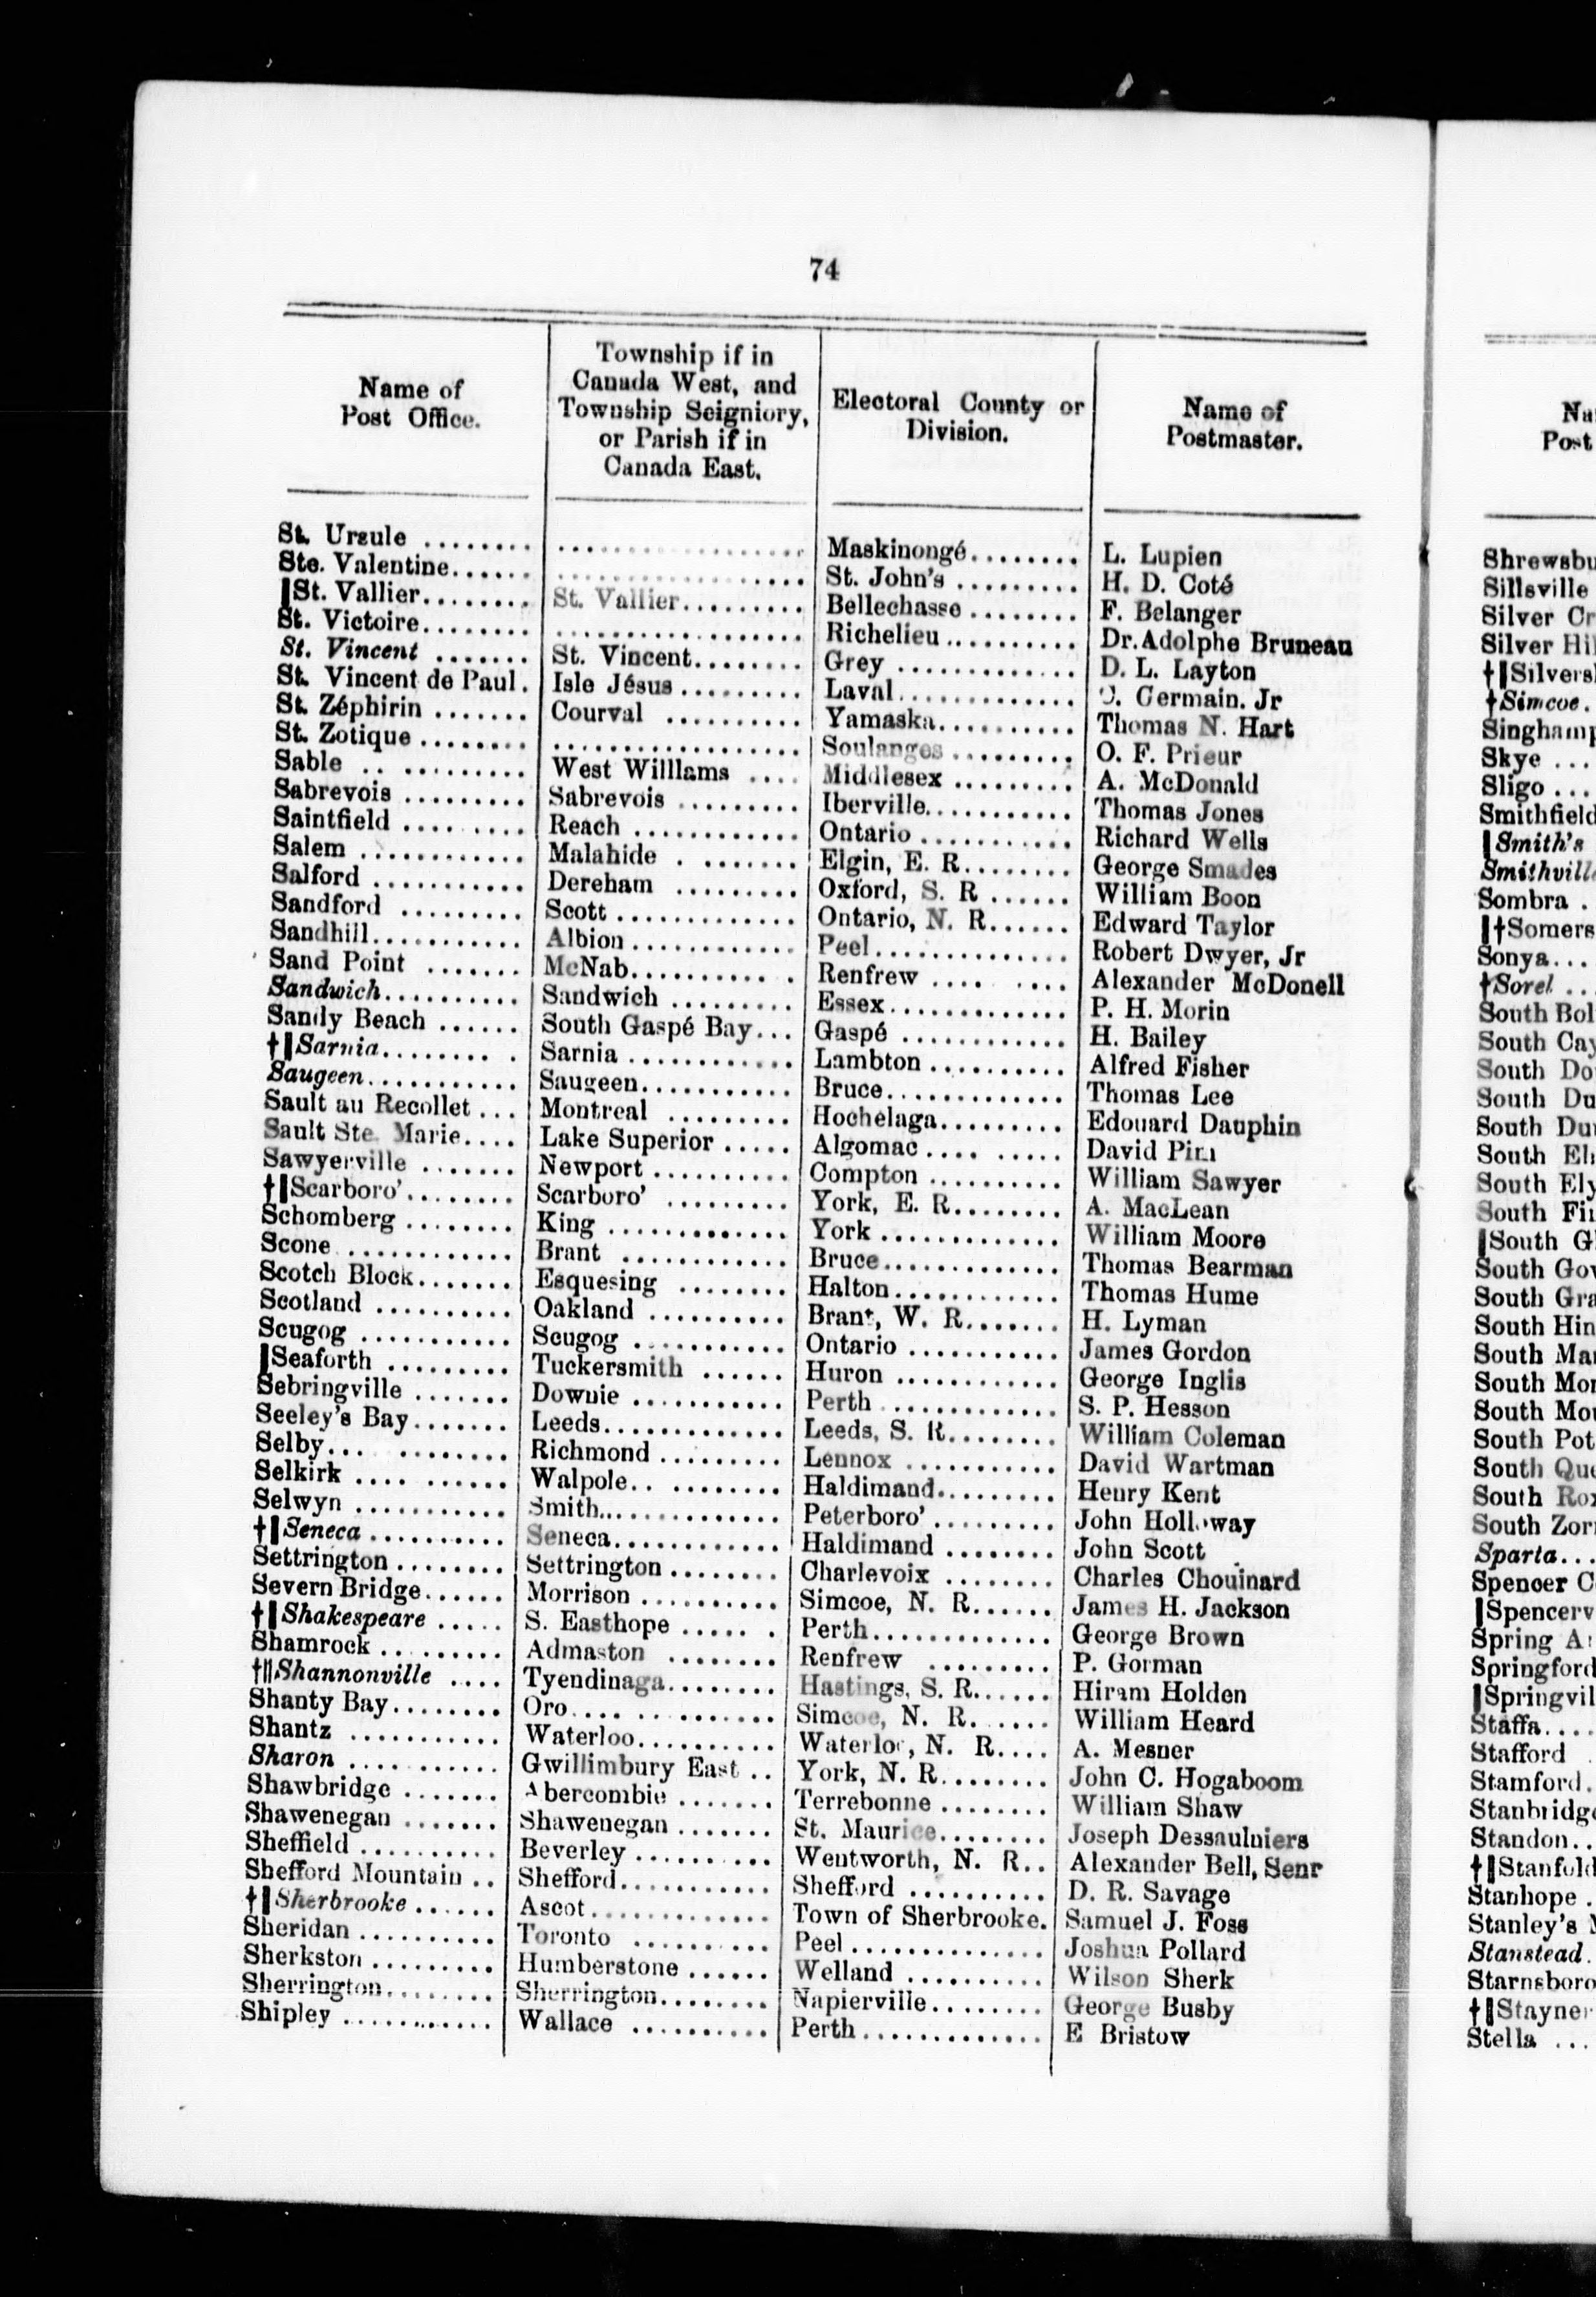 74
Name of
Post Office.
Township if in
Canada West, and
Township Seigniory,
or Parish if in
Canada East.
Electoral County or
Division.
Name of
Postmaster.
St. Ursule ........ .................. Maskinongé........ L. Lupien
Ste. Valentine...... .................. St. John's ......... H. D. Coté
‖St. Vallier........ St. Vallier......... Bellechasse ........ F. Belanger
St. Victoire........ .................. Richelieu.......... Dr. Adolphe Bruneau
St. Vincent ....... St. Vincent........ Grey ............. D. L. Layton
St. Vincent de Paul. Isle Jésus ......... Laval............. Germain. Jr
St. Zéphirin ....... Courval .......... Yamaska.......... Thomas N. Hart
St. Zotique ........ .................. Soulanges ......... O. F. Prieur
Sable .. ......... West Willlams .... Middlesex ......... A. McDonald
Sabrevois ......... Sabrevois ......... Iberville........... Thomas Jones
Saintfield ......... Reach ............ Ontario ........... Richard Wells
Salem ............ Malahide . ....... Elgin, E. R........ George Smades
Salford ........... Dereham ......... Oxford, S. R ...... William Boon
Sandford ......... Scott ............. Ontario, N. R...... Edward Taylor
Sandhill........... Albion ............ Peel.............. Robert Dwyer, Jr
Sand Point ....... McNab........... . Renfrew .... .... Alexander McDonell
Sandwich.......... Sandwich ......... Essex............. P. H. Morin
Sandy Beach ...... South Gaspé Bay... Gaspé ............ H. Bailey
†‖Sarnia........ . Sarnia ............ Lambton .......... Alfred Fisher
Saugeen........... Saugeen........... Bruce............. Thomas Lee
Sault au Recollet ... Montreal ......... Hochelaga......... Edouard Dauphin
Sault Ste. Marie.... Lake Superior ..... Algomac .... ..... David
Sawyerville ....... Newport .......... Compton .......... William Sawyer
†‖Scarboro'........ Scarboro' ......... York, E. R........ A. MacLean
Schomberg ........ King ............. York ............. William Moore
Scone ............ Brant ............ Bruce............. Thomas Bearman
Scotch Block....... Esquesing ........ Halton............ Thomas Hume
Scotland .......... Oakland .......... Brant, W. R....... H. Lyman
Scugog ........... Scugog ........... Ontario ........... James Gordon
‖Seaforth ......... Tuckersmith ...... Huron ............ George Inglis
Sebringville ....... Downie ........... Perth ............. S. P. Hesson
Seeley's Bay....... Leeds............. Leeds, S. R........ William Coleman
Selby... ........ Richmond ......... Lennox ........... David Wartman
Selkirk .... ...... Walpole.. ........ Haldimand......... Henry Kent
Selwyn ........... Smith............. Peterboro' ......... John Holloway
†‖Seneca .......... Seneca............ Haldimand ........ John Scott
Settrington ........ Settrington ........ Charlevoix ........ Charles Chouinard
Severn Bridge...... Morrison .......... Simcoe, N. R...... James H. Jackson
†‖Shakespeare ..... S. Easthope ..... . Perth............. George Brown
Shamrock ......... Admaston ........ Renfrew ......... P. Gorman
†‖Shannonville .... Tyendinaga........ Hastings, S. R...... Hiram Holden
Shanty Bay........ Oro.... .. ....... Simcoe, N. R. ..... William Heard
Shantz ........... Waterloo.......... Waterloo, N. R.... A. Mesner
Sharon ........... Gwillimbury East .. York, N. R........ John C. Hogaboom
Shawbridge ....... Abercombie ....... Terrebonne ........ William Shaw
Shawenegan ....... Shawenegan ....... St. Maurice........ Joseph Dessaulniers
Sheffield .......... Beverley .......... Wentworth, N. R.. Alexander Bell, Senr
Shefford Mountain .. Shefford........... Shefford .......... D. R. Savage
†‖Sherbrooke ...... Ascot............. Town of Sherbrooke. Samuel J. Foss
Sheridan .......... Toronto .......... Peel .............. Joshua Pollard
Sherkston ......... Humberstone ...... Welland .......... Wilson Sherk
Sherrington........ Sherrington........ Napierville........ George Busby
Shipley ........... Wallace .......... Perth............. E Bristow
Na
Post
Shrewsbu
Sillsville
Silver Cr
Silver Hil
†‖Silvers
†Simcoe.
Singhamp
Skye ...
Sligo ...
Smithfield
‖Smith's
Smithville
Sombra .
‖†Somers
Sonya...
†Sorel ..
South Bol
South Cay
South Do
South Du
South Du
South El
South Ely
South Fi
‖South G
South Gov
South Gra
South Hin
South Ma
South Mon
South Mo
South Pot
South Que
South Rox
South Zor
Sparta...
Spencer C
‖Spencerv
Spring A
Springford
‖Springvil
Staffa....
Stafford
Stamford.
Stanbridge
Standon..
†‖Stanfold
Stanhope .
Stanley's
Stanstead.
Starnsboro
†‖Stayner
Stella ...